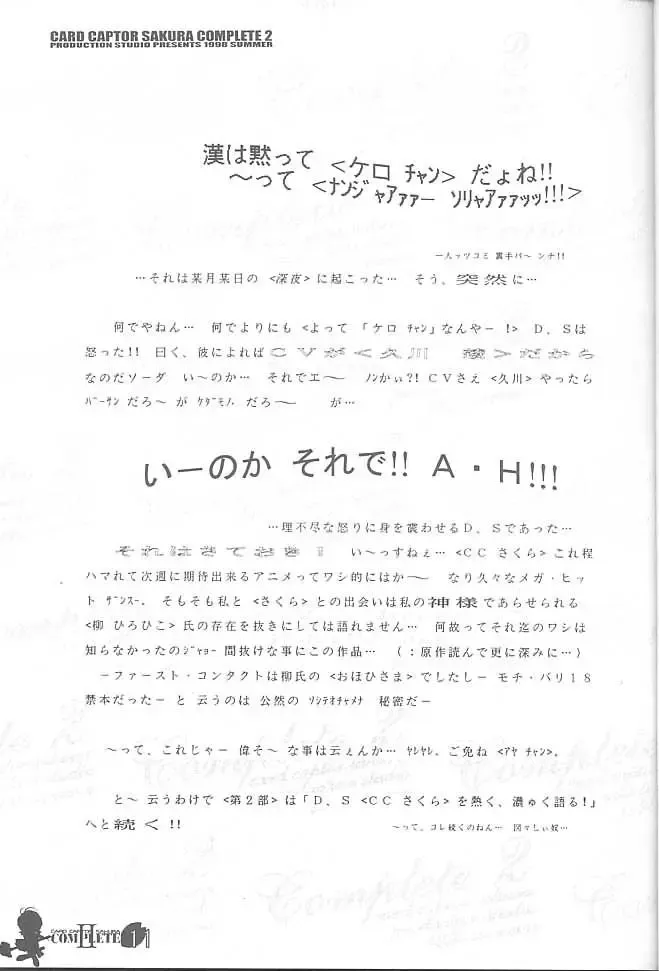 CARD CAPTOR SAKURA COMPLETE 2
PRODUCTION STUDIO PRESENTS 1998 SUMMER
漢は黙って <ケロ チャン> だょね!!
〜って <ナンジャアァァー ソリャアァァッッ!!!>
一人ッツコミ 裏手パ〜 ンチ!!
…それは某月某日の <深夜> に起こった… そう、突然に…
何でやねん… 何でよりにも <よって 「ケロ チャン」なんやー !> D、Sは
怒った!! 曰く、彼によればCVが<久川 綾>だから
なのだソーダ い〜のか… それでエ〜 ノンかぃ?! CVさえ <久川> やったら
バーサン だろ〜 が ケダモノ だろ〜 が…
いーのか それで!! A・H!!!
…理不尽な怒りに身を震わせるD、Sであった…
それはさておき! い〜っすねぇ… <CC さくら> これ程
ハマれて次週に期待出来るアニメってワシ的にはか〜 なり久々なメガ・ヒッ
ト ザンスー、そもそも私と <さくら> との出会いは私の神様であらせられる
<柳 ひろひこ> 氏の存在を抜きにしては語れません… 何故ってそれ迄のワシは
知らなかったのジャョー 間抜けな事にこの作品… (:原作読んで更に深みに…)
ーファースト・コンタクトは柳氏の <おほひさま> でしたしー モチ・バリ18
禁本だったー と 云うのは 公然の ソシテオチャメナ 秘密だー
〜って、これじゃー 偉そ〜 な事は云ぇんか… ヤレヤレ、ご免ね <アヤ チャン>、
と〜 云うわけで <第2部> は「D、S <CC さくら> を熱く、濃ゅく語る!」
へと続く!!
〜って、コレ続くのねん… 図々しぃ奴…
CARD CAPTOR SAKURA
COMPLETE II 11